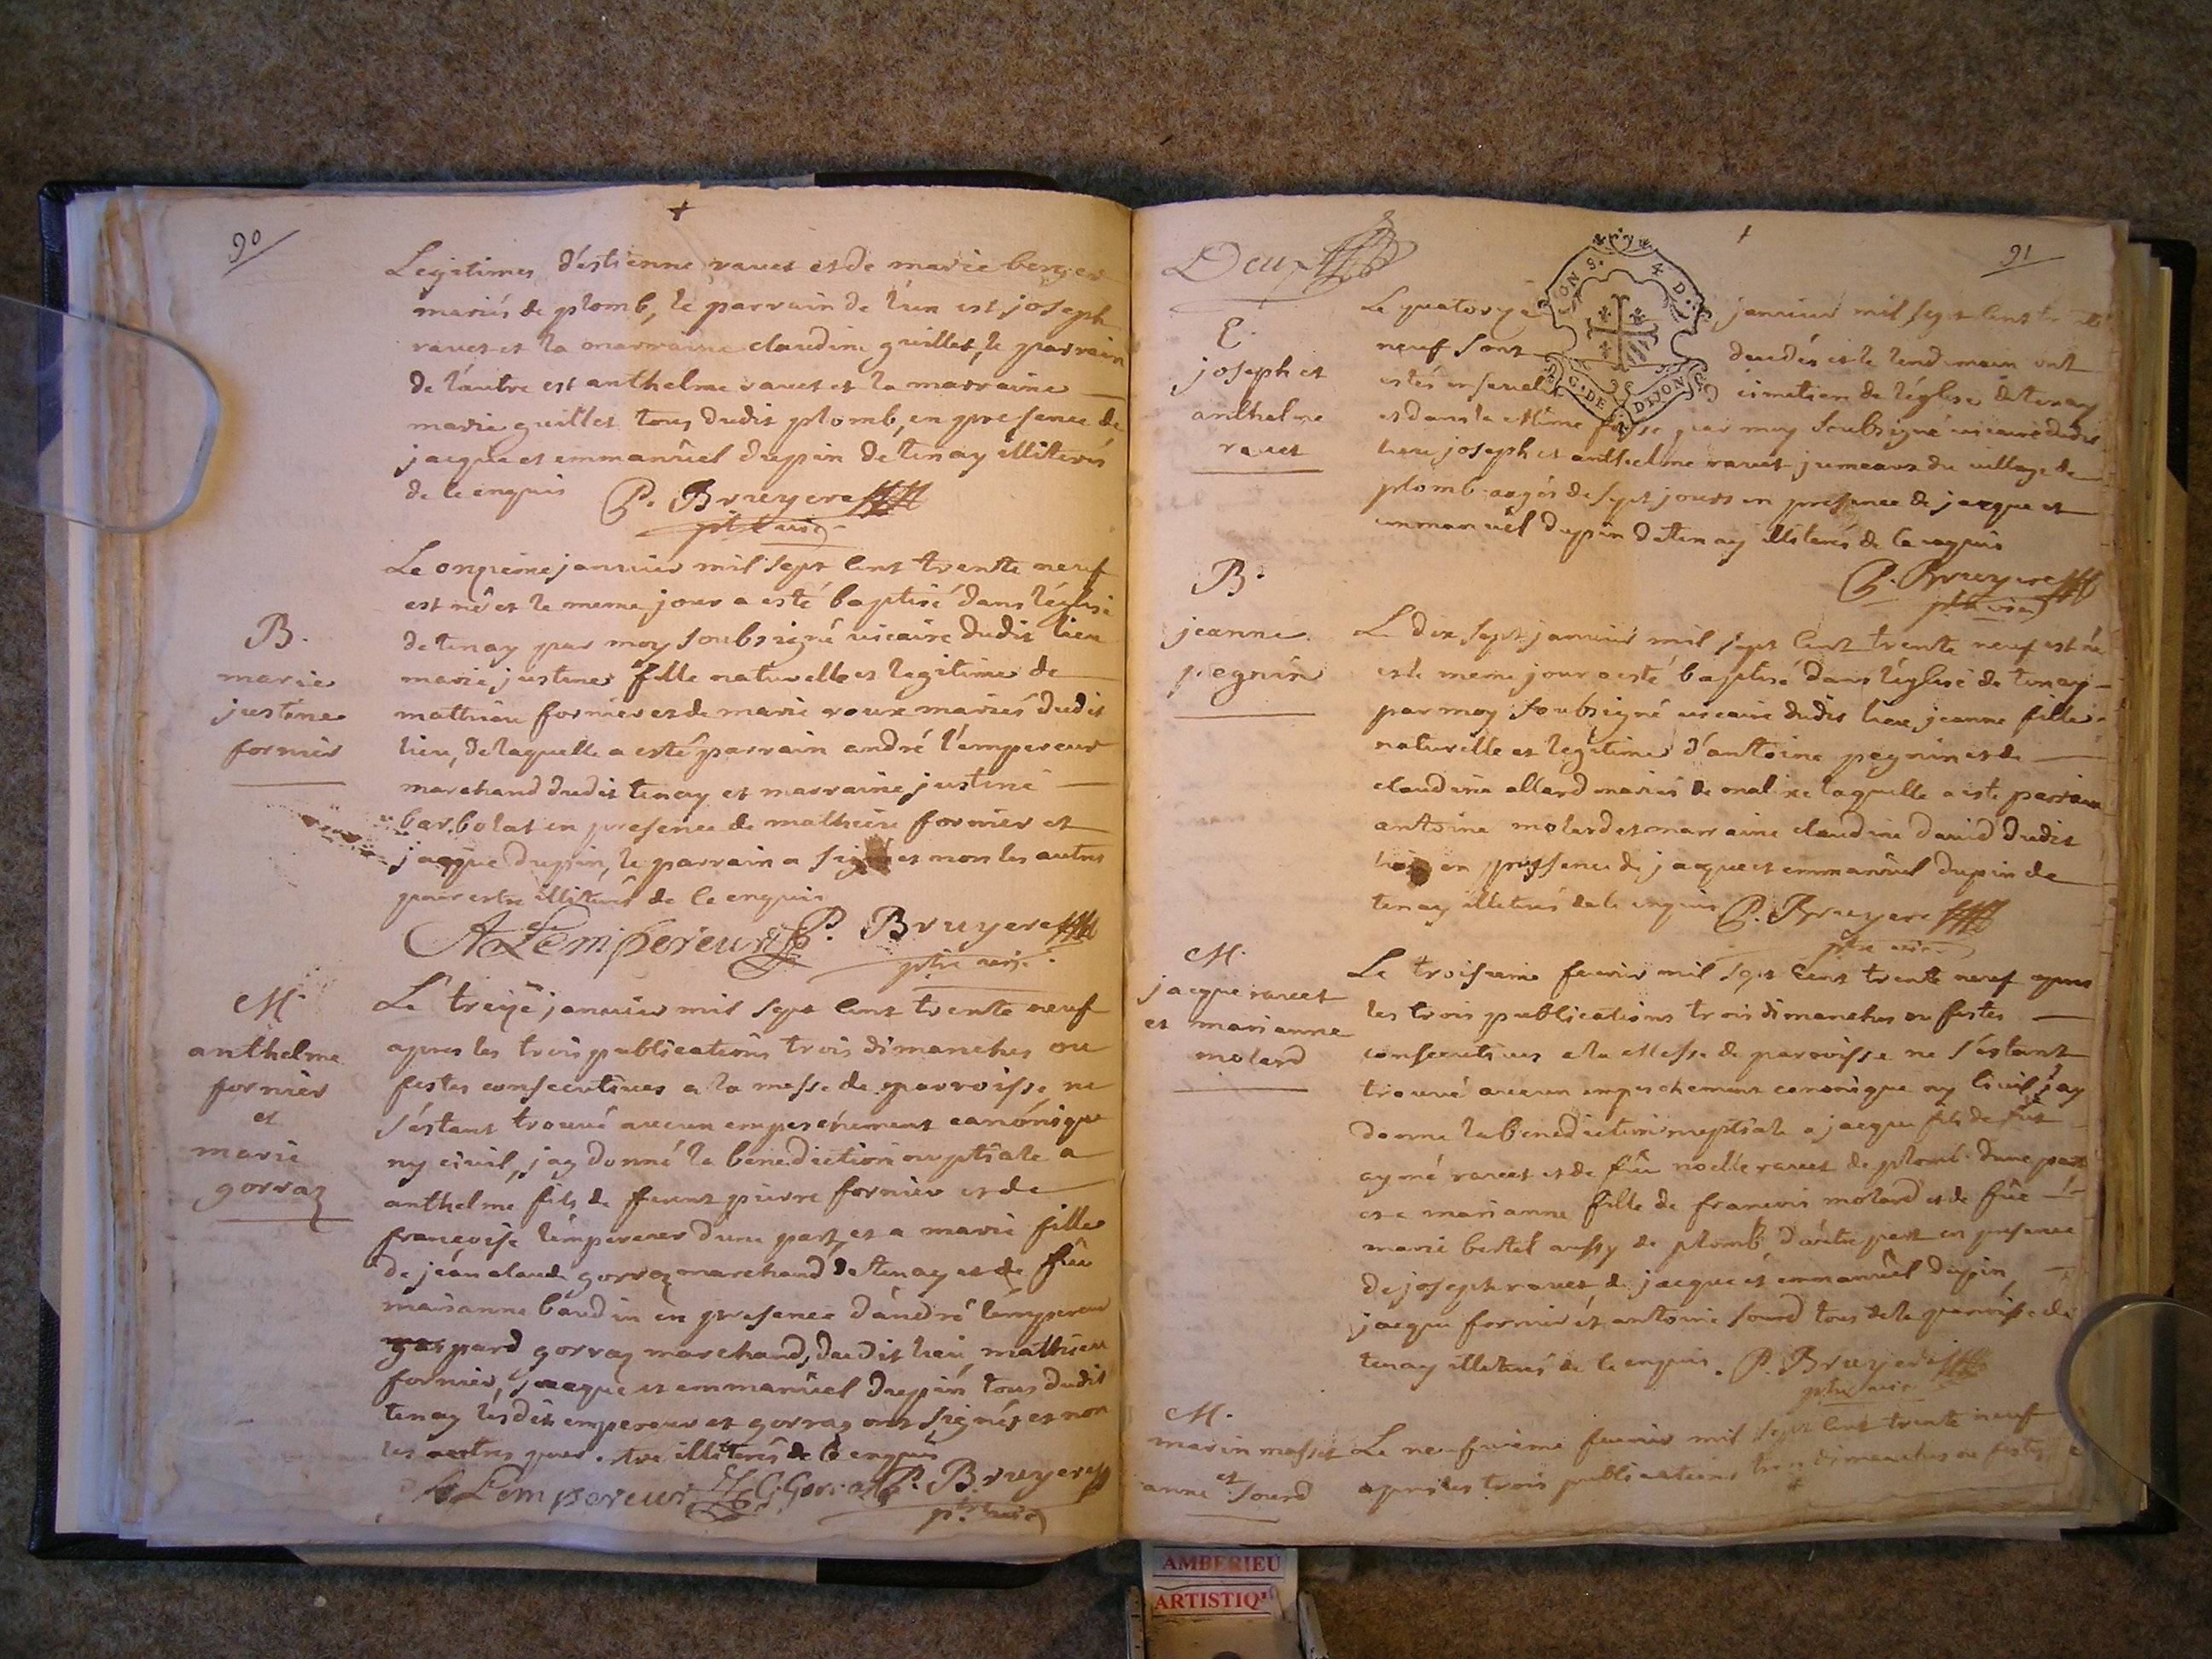 90
Legitimes d'estienne ravet et de marie berger
mariés de plomb, le parrain de l'un est joseph
ravet et la marraine claudine guillet, le parrain
de l'autre est anthelme ravet et la marraine
marie guillet tous dudit plomb, en presence de
jacque et emmanüel dupin de tenay illiterés
de ce enquis P. Bruyere
ptre vic.
B.
marie
justine
fornier
Le onzieme janvier mil sept cent trente neuf
est né et le meme jour a esté baptisé dans l'église
de tenay par moy soubsigné vicaire dudit lieu
marie justine fille naturelle et legitime de
mathieu fornier et de marie roux mariés dudit
lieu, de laquelle a esté parrain andré l'empereur
marchand dudit tenay et marraine justine
barbolat en presence de mathieu fornier et
jacque dupin, le parrain a signé et non les autres
pour estre illiterés de ce enquis
A Lempereur P. Bruyere
ptre vic.
M.
anthelme
fornier
et
marie
gorraz
Le treize janvier mil sept cent trente neuf
apres les trois publications trois dimanches ou
festes consecutives a la messe de parroisse ne
s'estant trouvé aucun empeschement canónique
ny civil, j'ay donné la benediction nuptiale a
anthelme fils de feu pierre fornier et de
françoise l'empereur d'une part, et a marie fille
de jean claude gorraz marchand de tenay et de füe
marianne baudin en presence d'andré l'empereur
gaspard gorraz marchand, dudit lieu mathieu
fornier, jacque et emmanüel dupin tous dudit
tenay lesdits empereur et gorraz ont signés et non
les autres pour estre illiterés de ce enquis
Lempereur C. Gorraz P. Bruyere
ptre vic.
Deux
91
GON S. 4 D.
G. DE DIJON
E.
joseph et
anthelme
ravet
Le quatorze janvier mil sept cent trente
neuf sont decedés et le lendemain ont
estés ensevelis cimetiere de l'église de tenay
et dans la même fosse par moy soubsigné vicaire dudit
lieu joseph et anthelme ravet jumeaux du village de
plomb aagés de sept jours en presence de jacque et
emmanüel dupin de tenay illiterés de ce enquis
P. Bruyere
ptre vic.
B.
jeanne
pegnin
Le dix sept janvier mil sept cent trente neuf est né
et le meme jour a esté baptisé dans l'église de tenay
par moy soubsigné vicaire dudit lieu, jeanne fille
naturelle et legitime d'antoine pegnin et de
claudine allard mariés de malix laquelle a esté parrain
antoine molard et marraine claudine david dudit
lieu en presence de jacque et emmanüel dupin de
tenay illiterés de ce enquis P. Bruyere
ptre vic.
M.
jacque ravet
et marianne
molard
Le troisieme fevrier mil sept cent trente neuf apres
les trois publications trois dimanches ou festes
consecutives a la Messe de parroisse ne s'estant
trouvé aucun empeschement canonique ny civil j'ay
donne la benediction nuptiale a jacque fils de fut
aymé ravet et de füe noelle ravet de plomb d'une part
et a marianne fille de francois molard et de füe
marie bertet aussy de plomb d'autre part en presence
de joseph ravet, de jacque et emmanüel dupin,
jacque fornier et antoine sourd tous de la parroisse de
tenay illiterés de ce enquis. P. Bruyere
ptre vic.
M.
marin masset
et
anne sourd
Le neufvieme fevrier mil sept cent trente neuf
apres les trois publications trois dimanches ou festes
AMBERIEU
ARTISTIQ